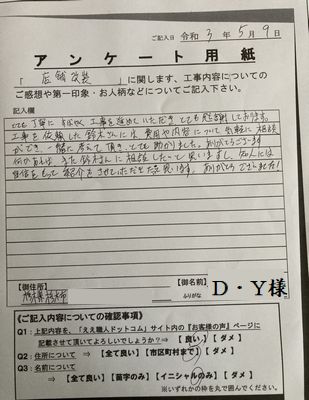 ご記入日 令和 3 年 5 月 9 日
アンケート用紙
「 店舗改装 」に関します、工事内容についての
ご感想や第一印象・お人柄などについてご記入下さい。
記入欄
とても丁寧に すばやく 工事を進めていただき とても感謝しております。
工事を依頼した鈴木さんには、費用や内容について気軽に相談
ができ、一緒に考えて頂き、とても助かりました。ありがとうございます
何かあれば、また鈴村さんに相談したいと思いますし、知人には
自信をもって紹介をさせていただきたいと思います。ありがとうございました!
【御住所】
【御名前】
ふりがな
D・Y様
《ご記入内容についての確認事項》
Q1：上記内容を、「ええ職人ドットコム」サイト内の『お客様の声』ページに
記載させて頂いてよろしいでしょうか？⇒【 良い 】【 ダメ 】
Q2：住所について ⇒ 【 全て良い 】【市区町村まで】【 ダメ 】
Q3：名前について
⇒【 全て良い 】【苗字のみ】【イニシャルのみ】【 ダメ 】
※いずれかの枠を丸で囲んでください。